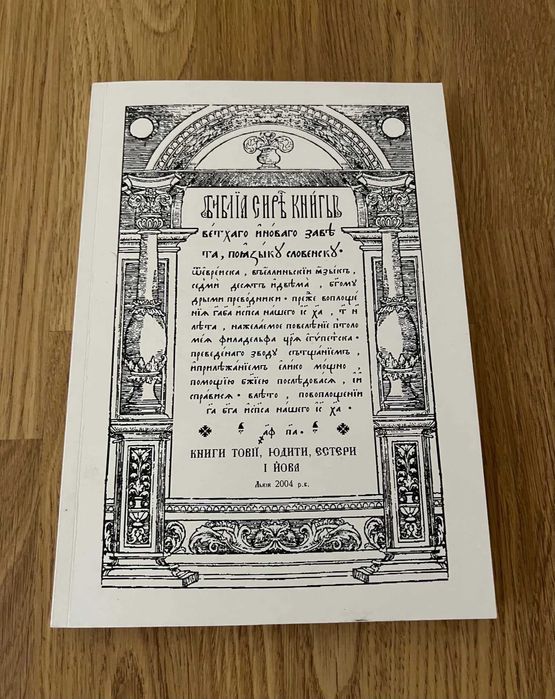 Бїблїа сирѣ книгы
ве́тхаго и҆но́ваго завѣ́
та, поꙗ҆зы́кꙋ слове́нскꙋ·
ѿє҆вре́йска, въе҆́ллиньскїи ꙗ҆зы́къ,
се́дмї деся́тъ и҆двѣма̀, бг҃ому́
дрыми преводники· пре́же воплоще́
нїѧ га҃ ба҃ и҆сп҃са на́шего іс҃ ха҃, т҃ и҃
лѣта, нажела́емое повеле́нїе пт́оло
ме́ѧ филаде́льфа цр҃ѧ є҆гу́петска·
преведе́наго зво́ду сътща́нїемъ,
и҆прилѣжа́нїемъ є҆ли́ко мо́щно,
помощїю бж҃їею послѣ́довасѧ, и҆и҆
спра́висѧ· влѣ́то, повоплоще́нїи
га҃ бг҃а и҆сп҃са на́шего іс҃ ха҃·
҂аф па҃·
КНИГИ ТОВІЇ, ЮДИТИ, ЕСТЕРИ
І ЙОВА
Львів 2004 р.б.